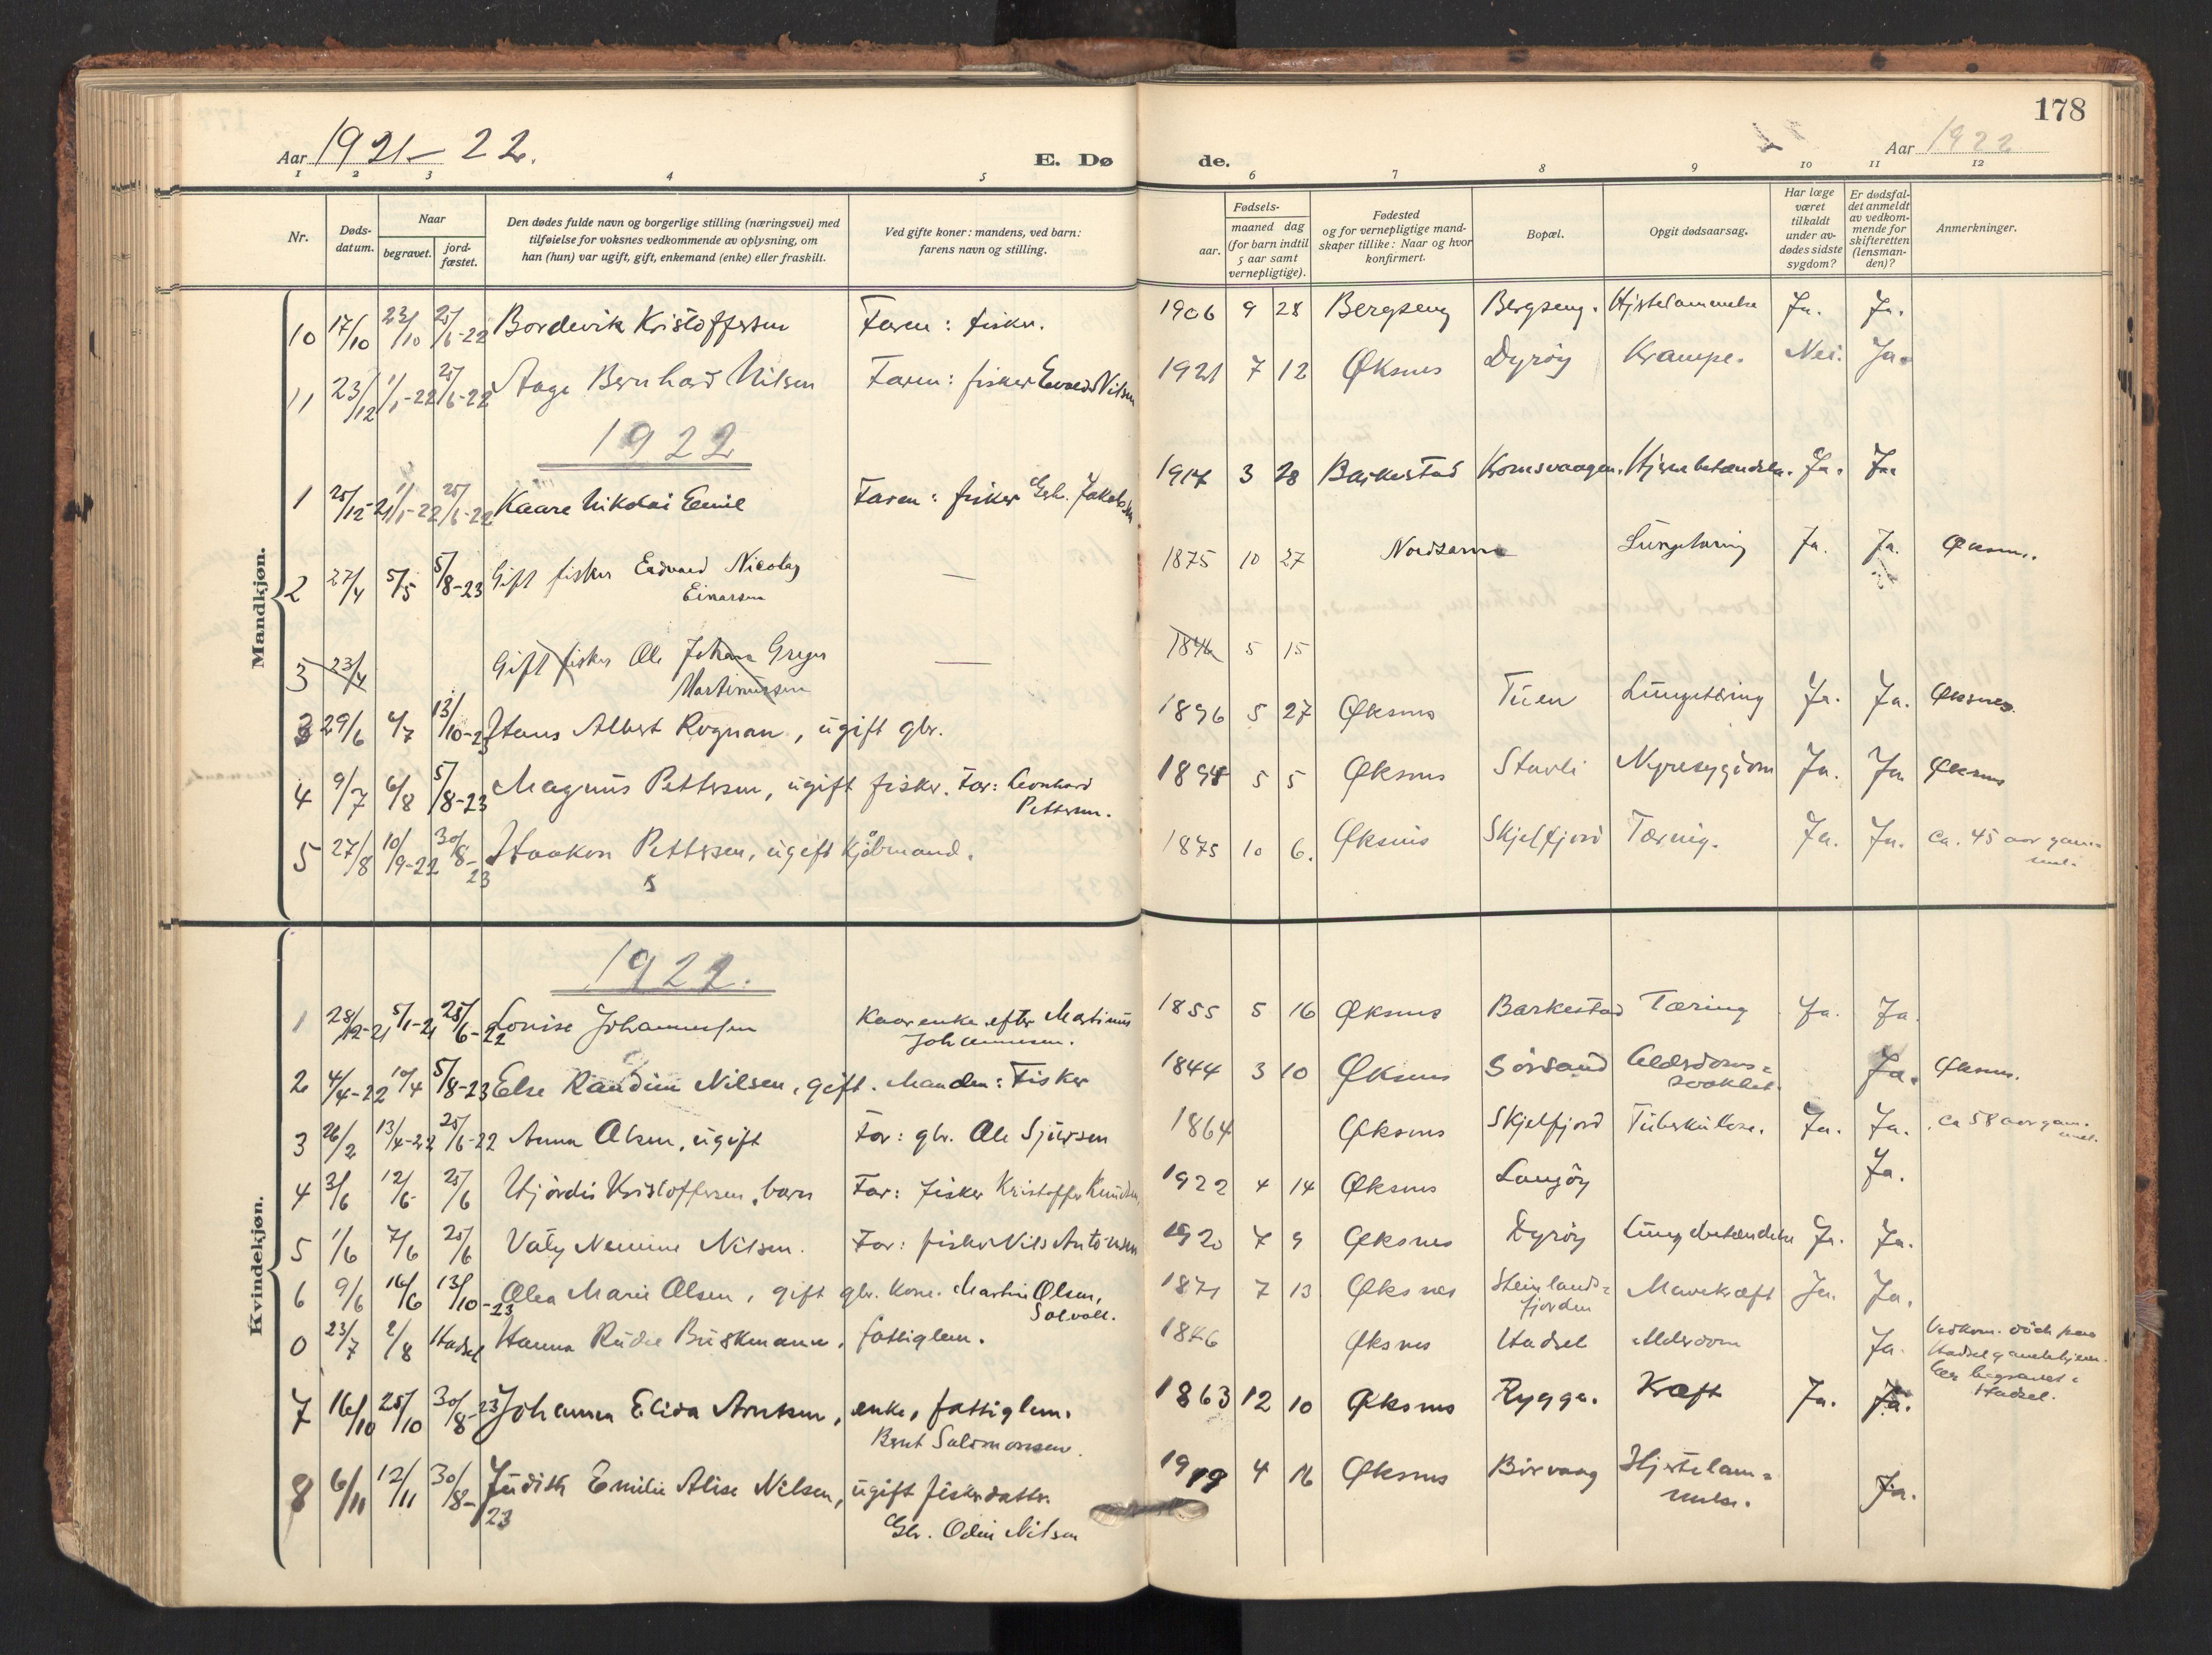 178
Aar 1921-22.
E. Døde.
Aar 1922
1 2 3 4 5 6 7 8 9 10 11 12
Nr.
Døds-
datum.
Naar
begravet.
jord-
fæstet.
Den dødes fulde navn og borgerlige stilling (næringsvei) med
tilføielse for voksnes vedkommende av oplysning, om
han (hun) var ugift, gift, enkemand (enke) eller fraskilt.
Ved gifte koner: mandens, ved barn:
farens navn og stilling.
Fødsels-
aar.
maaned dag
(for barn indtil
5 aar samt
vernepligtige).
Fødested
og for vernepligtige mand-
skaper tillike: Naar og hvor
konfirmert.
Bopæl.
Opgit dødsaarsag.
Har læge
været
tilkaldt
under av-
dødes sidste
sygdom?
Er dødsfal-
det anmeldt
av vedkom-
mende for
skifteretten
(lensman-
den)?
Anmerkninger.
Mandkjøn.
10 17/10 23/10 25/6-22 Bordevik Kristoffersen Faren: fisker. 1906 9 28 Bergseng Bergseng. Hjertelammelse Ja. Ja.
11 23/12 1/1-22 25/6-22 Aage Bernhard Nilsen Faren: fisker Nilsen 1921 7 12 Øksnes Dyrøy Krampe. Nei. Ja.
1922
1 25/12-21 1/1-22 25/6-22 Kaare Nikolai Emil Faren: fisker Jakobsen 1917 3 28 Barkestad Kornsvaagen. Hjernebetændelse. Ja. Ja
2 27/4 5/5 5/8-23 Gift fisker Edvard Nicolay
Einarsen — 1875 10 27 Lungetæring Ja. Ja. Øksnes.
3 23/4 Gift fisker Ole Johan Greger
Martinussen — 1846 5 15
3 29/6 4/7 13/10-23 Hans Albert Rognan, ugift gbr. 1896 5 27 Øksnes Tuen Lungetæring Ja. Ja. Øksnes.
4 9/7 6/8 5/8-23 Magnus Pettersen, ugift fisker. Far: Leonhard
Pettersen. 1898 5 5 Øksnes Stavli Nyresygdom Ja. Ja Øksnes
5 27/8 10/9-22 30/8-23 Haakon Pettersen, ugift kjøbmand. 1875 10 6. Øksnes Skjelfjord Tæring. Ja. Ja. ca. 45 aar gam-
mel.
5
Kvindekjøn.
1922.
1 28/12-21 5/1-21 25/6-22 Lonise Johannessen Kaarenke efter Martinus
Johannesen. 1855 5 16 Øksnes Barkestad Tæring Ja. Ja.
2 4/4-22 10/4 5/8-23 Else Randine Nilsen, gift. Manden: Fisker 1844 3 10 Øksnes Sörsand Alderdoms=
svakhet. Ja. Øksnes.
3 26/2 13/4-22 25/6-22 Anna Olsen, ugift Far: gbr. Ole Sjursen 1864 Øksnes Skjelfjord Tuberkulose. Ja. Ja. ca 58 aar gam-
mel.
4 3/6 12/6 25/6 Hjördis Kristoffersen, barn Far: fisker Kristoffer Knudsen 1922 4 14 Øksnes Langöy Ja.
5 1/6 7/6 25/6 Valy Nemine Nilsen. Far: fisker Nils Antonsen 1920 7 9 Øksnes Dyröy Lungebetændelse Ja. Ja.
6 9/6 16/6 13/10-23 Olea Marie Olsen, gift gbr. kone. Martin Olsen,
Solvoll. 1871 7 13 Øksnes Steinlands=
fjorden Mavekræft Ja. Ja.
0 23/7 2/8 Hadsel Hanna Buskmann, fattiglem. 1846 Øksnes Hadsel Alderdom Ja. Vedkom. död paa
Hadsel gamlehjem.
begravet i
Hadsel.
7 16/10 25/10 30/8-23 Johanna Elida Arntsen, enke, fattiglem.
Bernt Salomonsen. 1863 12 10 Øksnes Rygge. Kræft Ja. Ja.
8 6/11 12/11 30/8-23 Judith Emilie Alise Nilsen, ugift fiskerdatter.
Gbr. Odin Nilsen 1919 4 16 Øksnes Börvaag Hjertelam=
melse. Ja.